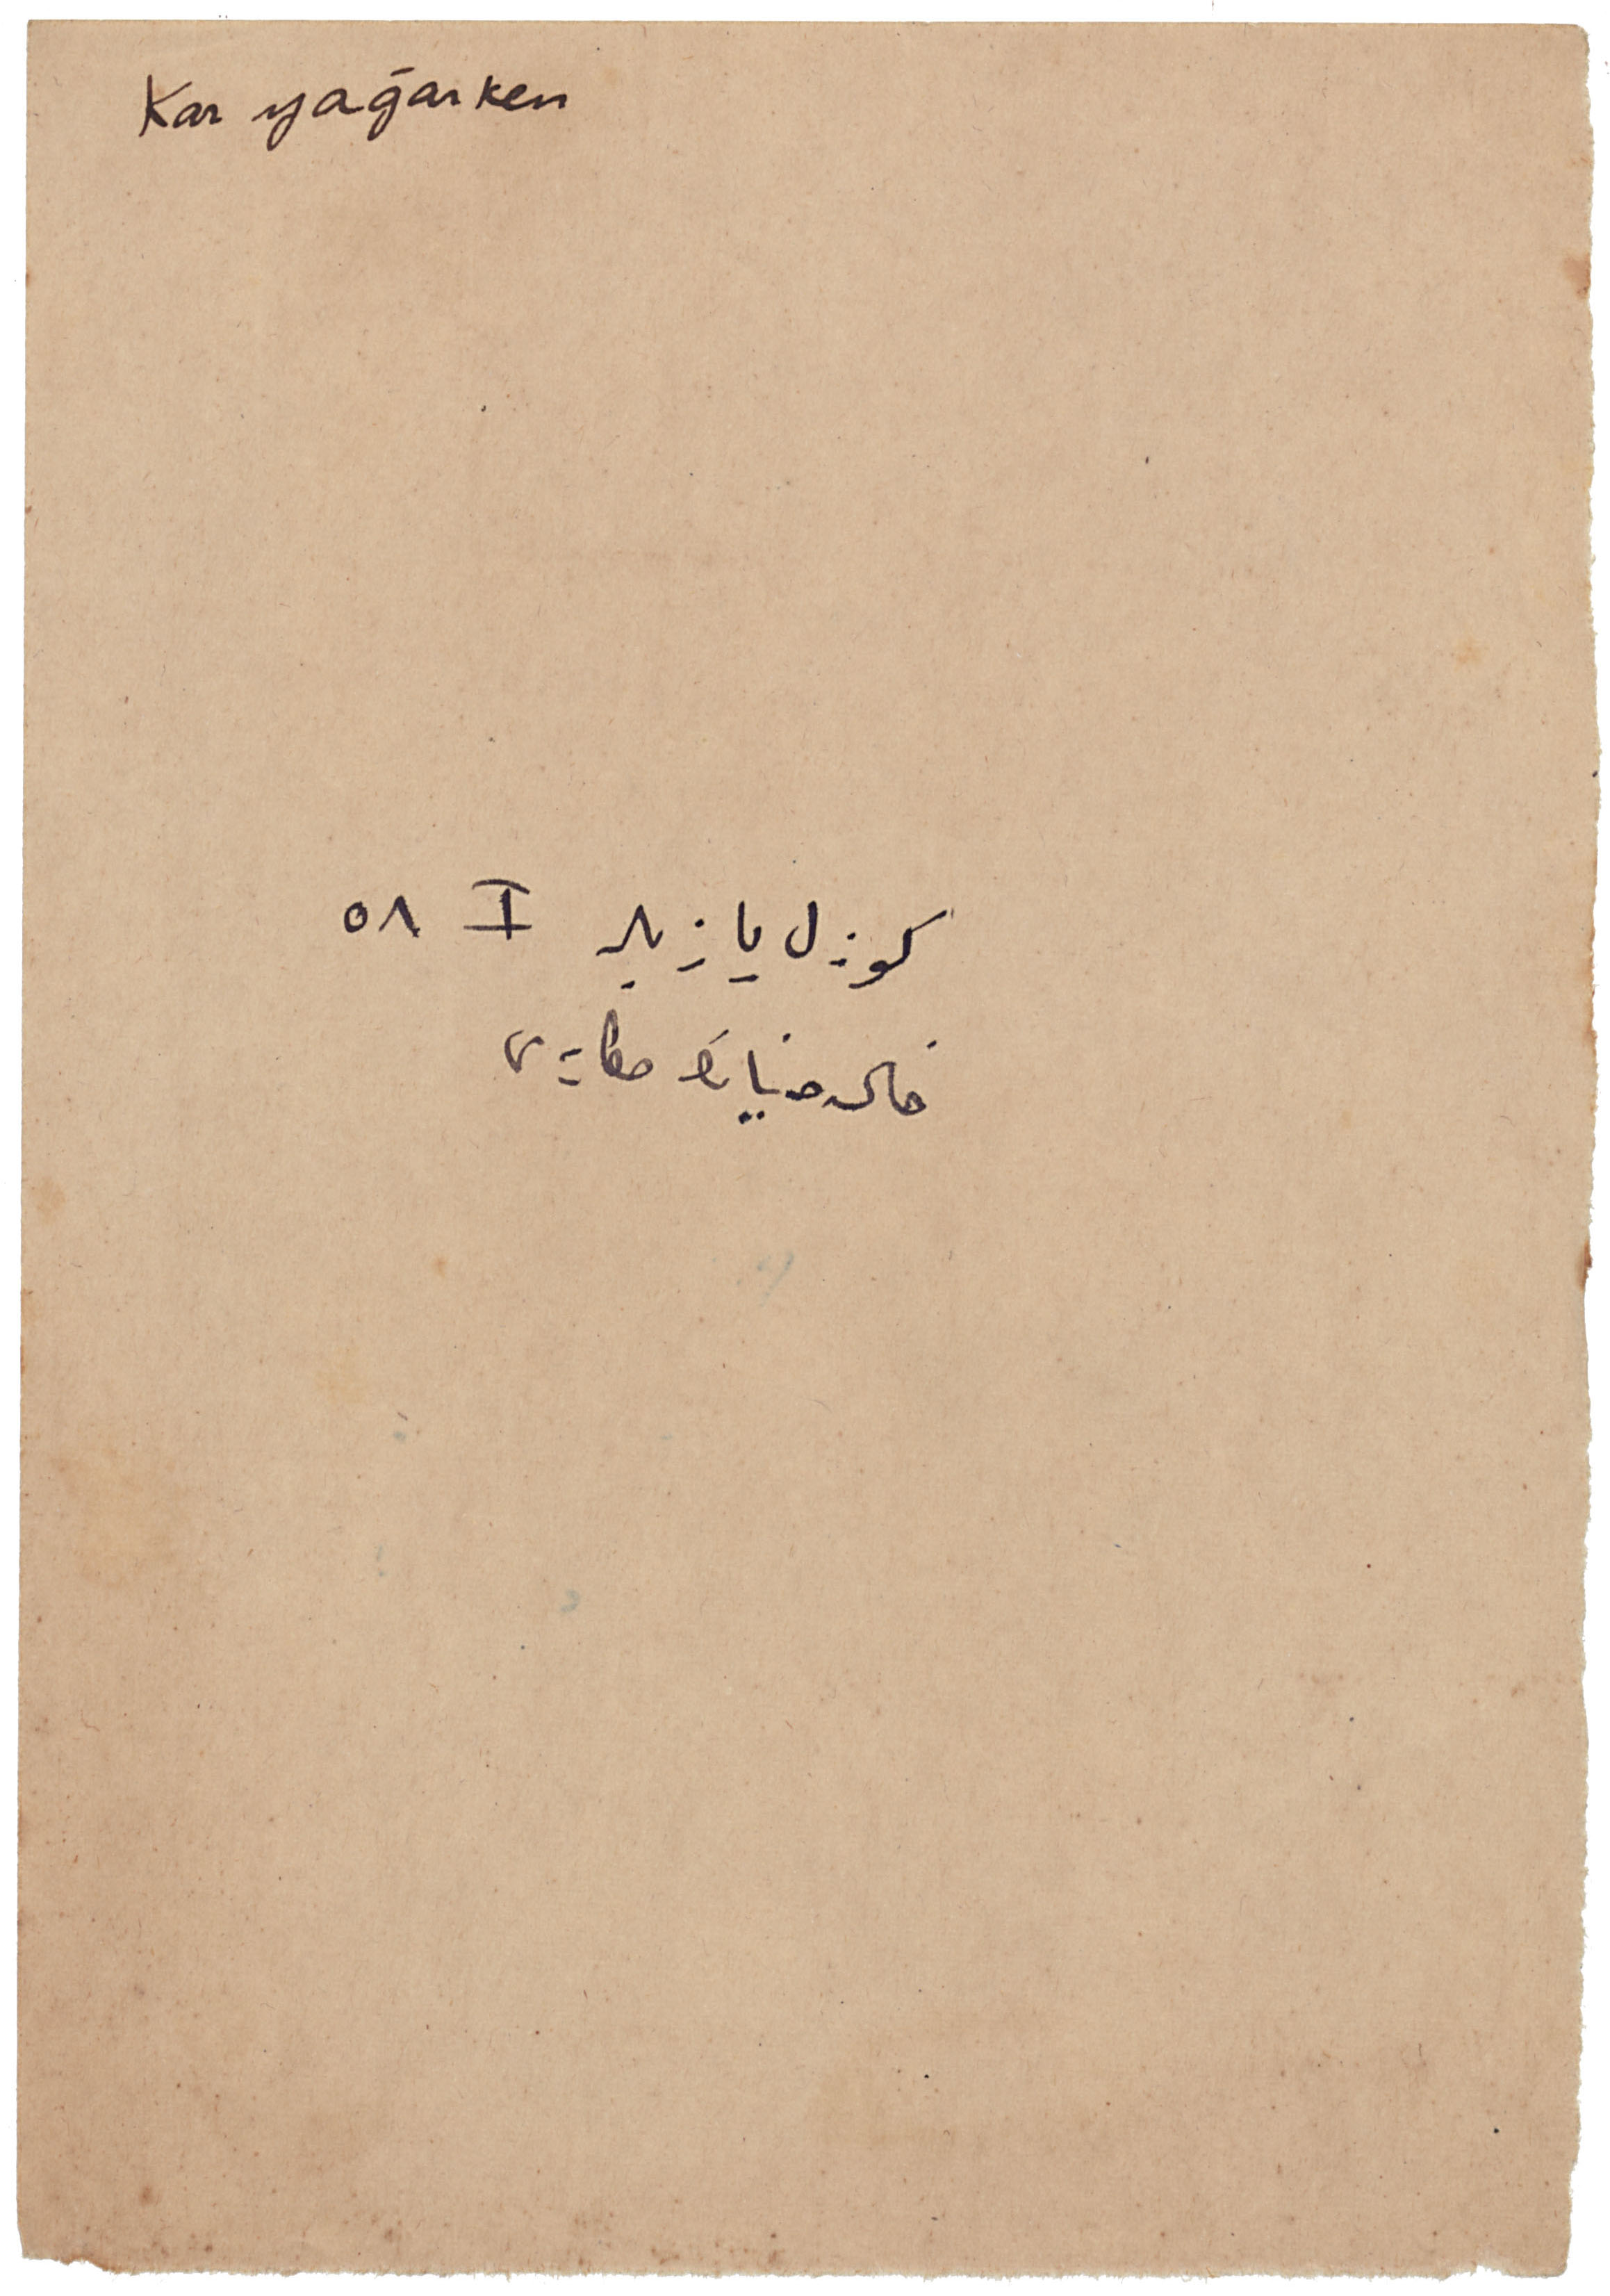 Kar yağarken
كوزل يازيلر I ٥٨
خالد ضيانڭ مكاتبى